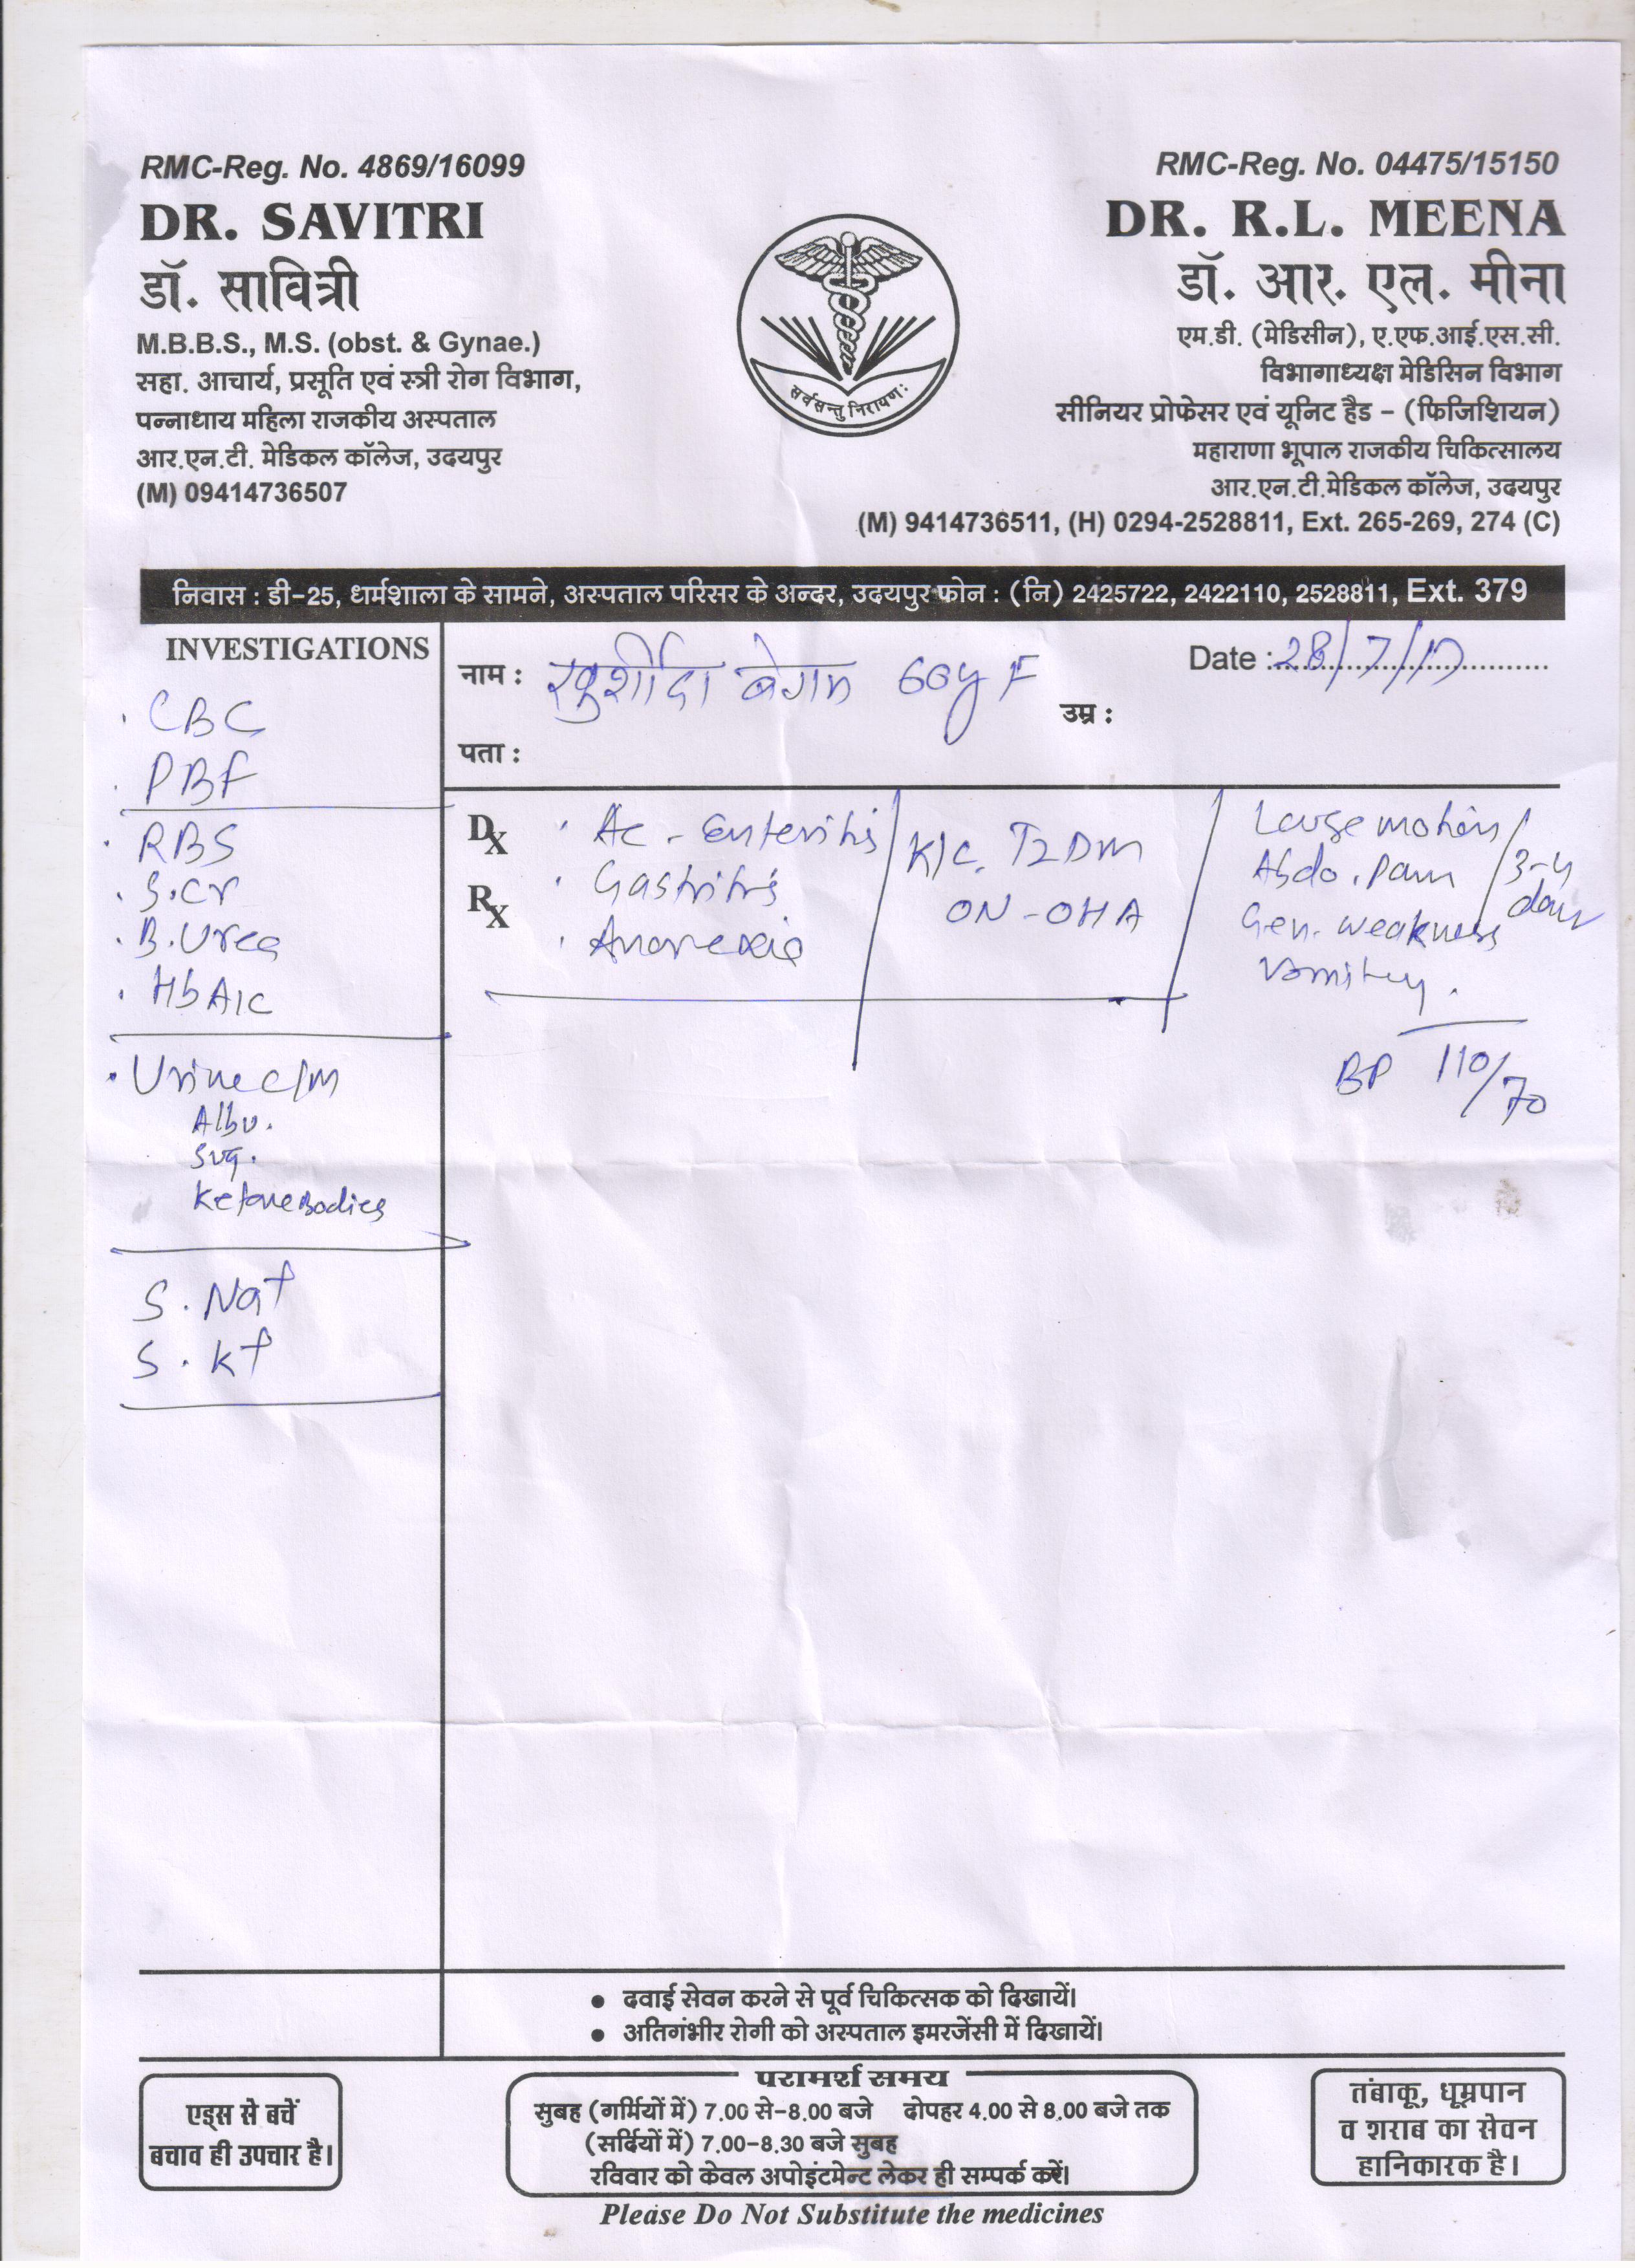 RMC-Reg. No. 4869/16099
DR. SAVITRI
डॉ. सावित्री
M.B.B.S., M.S. (obst. & Gynae.)
सहा. आचार्य, प्रसूति एवं स्त्री रोग विभाग,
पन्नाधाय महिला राजकीय अस्पताल
आर.एन.टी. मेडिकल कॉलेज, उदयपुर
(M) 09414736507
सर्वसन्तु निरायणः
RMC-Reg. No. 04475/15150
DR. R.L. MEENA
डॉ. आर. एल. मीना
एम.डी. (मेडिसीन), ए.एफ.आई.एस.सी.
विभागाध्यक्ष मेडिसिन विभाग
सीनियर प्रोफेसर एवं यूनिट हैड – (फिजिशियन)
महाराणा भूपाल राजकीय चिकित्सालय
आर.एन.टी.मेडिकल कॉलेज, उदयपुर
(M) 9414736511, (H) 0294-2528811, Ext. 265-269, 274 (C)
निवास : डी-25, धार्मशाला के सामने, अस्पताल परिसर के अन्दर, उदयपुर फोन : (नि) 2425722, 2422110, 2528811, Ext. 379
INVESTIGATIONS
. CBC
. PBF
. RBS
. S.Cr
. B.Urea
. HbA1C
. Urine C/M
Albu.
Sug.
Ketone Bodies
S. Na+
S. K+
नाम : खुर्शीदा बेगम 60y F
उम्र :
Date : 28/7/17
पता :
Dx
Rx
. Ac - Enteritis
. Gastritis
. Anorexia
K/C. T2DM
ON - OHA
Louse motion
Abdo. Pain
Gen. weakness
Vomiting.
3-4
days
BP 110/70
• दवाई सेवन करने से पूर्व चिकित्सक को दिखायें।
• अतिगंभीर रोगी को अस्पताल इमरजेंसी में दिखायें।
एड्स से बचें
बचाव ही उपचार है।
परामर्श समय
सुबह (गर्मियों में) 7.00 से-8.00 बजे दोपहर 4.00 से 8.00 बजे तक
(सर्दियों में) 7.00-8.30 बजे सुबह
रविवार को केवल अपोइंटमेन्ट लेकर ही सम्पर्क करें।
तंबाकू, धूम्रपान
व शराब का सेवन
हानिकारक है।
Please Do Not Substitute the medicines